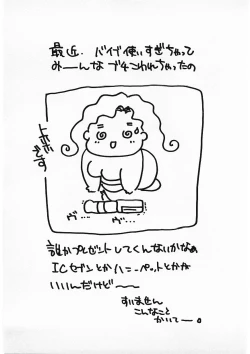 最近、バイブ使いすぎちゃって
みーんな ブチこわれちゃったの
トホホです
ヴ… ヴ…
誰かプレゼントしてくんないかなぁ
ICセブンとかハニーペットとかが
いいんだけど〜〜
すいません
こんなこと
かいてー。